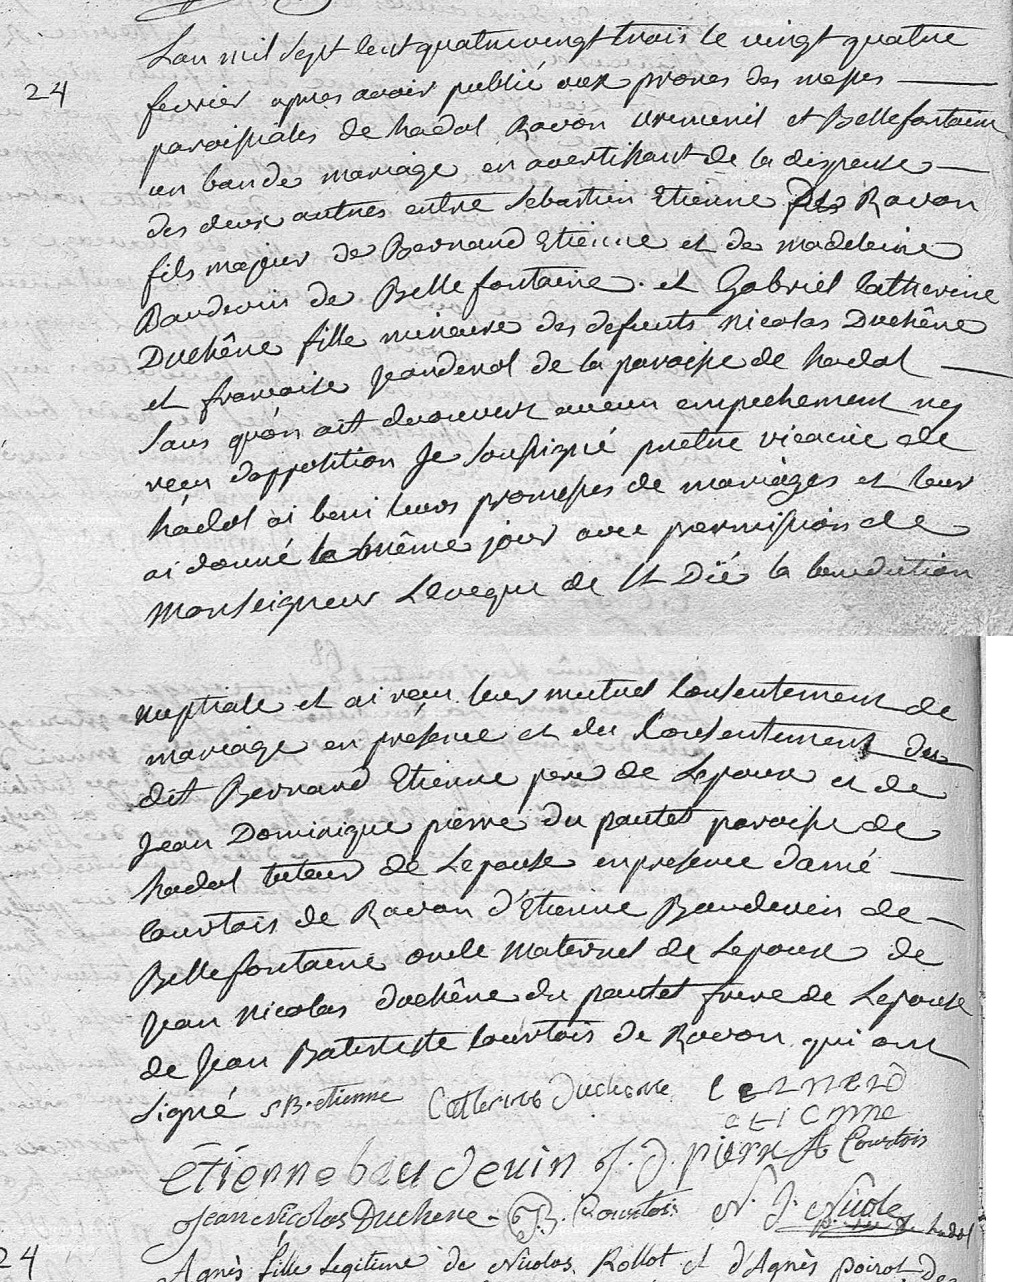 Lan mil sept cent quatrevingt trois le vingt quatre
24
fevrier apres avoir publié aux prones des messes
paroissiales de hadol Raon uremenil et Bellefontaine
un ban de mariage en avertissant de la dispense
des deux autres entre Sebastien Etienne de Raon
fils majeur de Bernard Etienne et de madeleine
Baudevin de Bellefontaine. et Gabriel Catherine
Duchêne fille mineure des defunts Nicolas Duchêne
et francoise Jeandenol de la paroisse de hadol
sans qu'on ait decouvert aucun empechement ny
recu dopposition Je soussigné pretre vicaire de
hadol ai beni leurs promesses de mariages et leur
ai donné le même jour avec permission de
Monseigneur Leveque de St Dié la benediction
nuptiale et ai recu leur mutuel consentement de
mariage en présence et du consentement du
dit Bernard Etienne pere de Lepoux et de
Jean Dominique pierre du pautet paroisse de
hadol tuteur de Lepouse en presence damé
Courtois de Raon d'Etienne Baudevin de
Bellefontaine oncle maternel de Lepoux de
Jean Nicolas duchêne du pautet frere de Lepouse
de Jean Batististe Courtois de Raon qui ont
signé s B. etienne Catterinne Duchenne bernard
etienne
étienne baudevin J. d. pierre A Courtois
Jean Nicolas Duchene J B. Courtois N. J. Nicole
hadol
24
Agnès fille legitime de Nicolas Rollot et d'Agnès poirot de